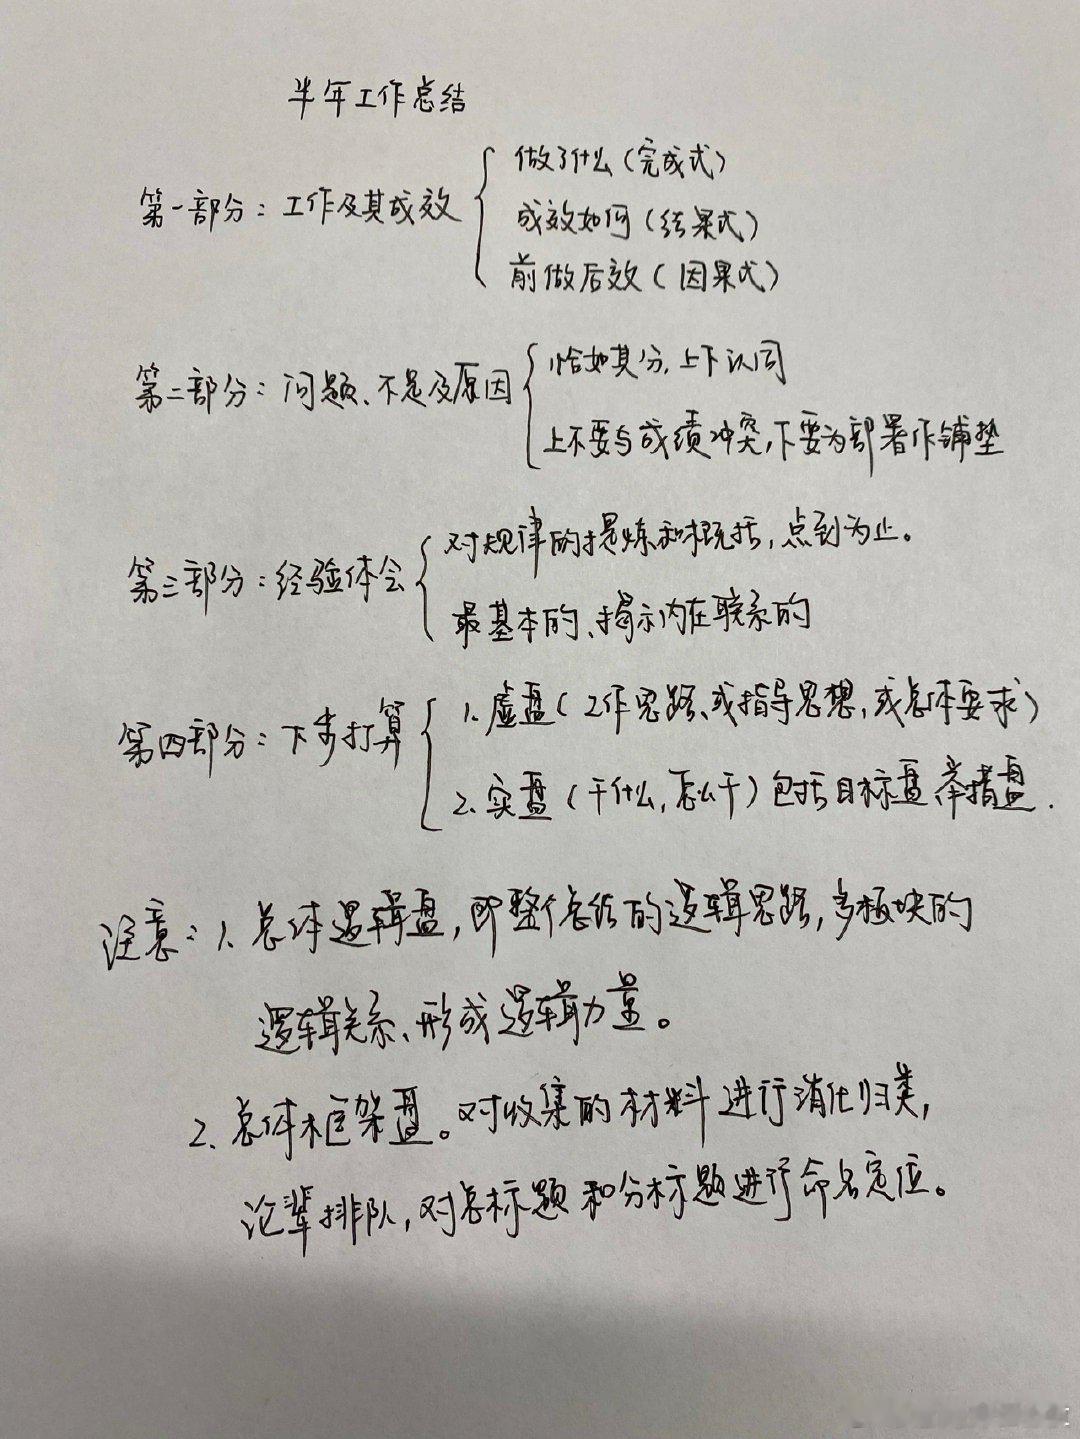 半年工作总结
第一部分：工作及其成效
做了什么（完成式）
成效如何（结果式）
前做后效（因果式）
第二部分：问题、不足及原因
恰如其分，上下认同
上不要与成绩冲突，下要为部署作铺垫
第三部分：经验体会
对规律的提炼和概括，点到为止。
最基本的、揭示内在联系的
第四部分：下步打算
1、虚盘（工作思路、或指导思想，或总体要求）
2、实盘（干什么，怎么干）包括目标盘、举措盘.
注意：1、总体逻辑盘，即整个总结的逻辑思路，多板块的
逻辑关系、形成逻辑力量。
2、总体框架盘。对收集的材料进行消化归类，
论辈排队，对总标题和分标题进行命名定位。